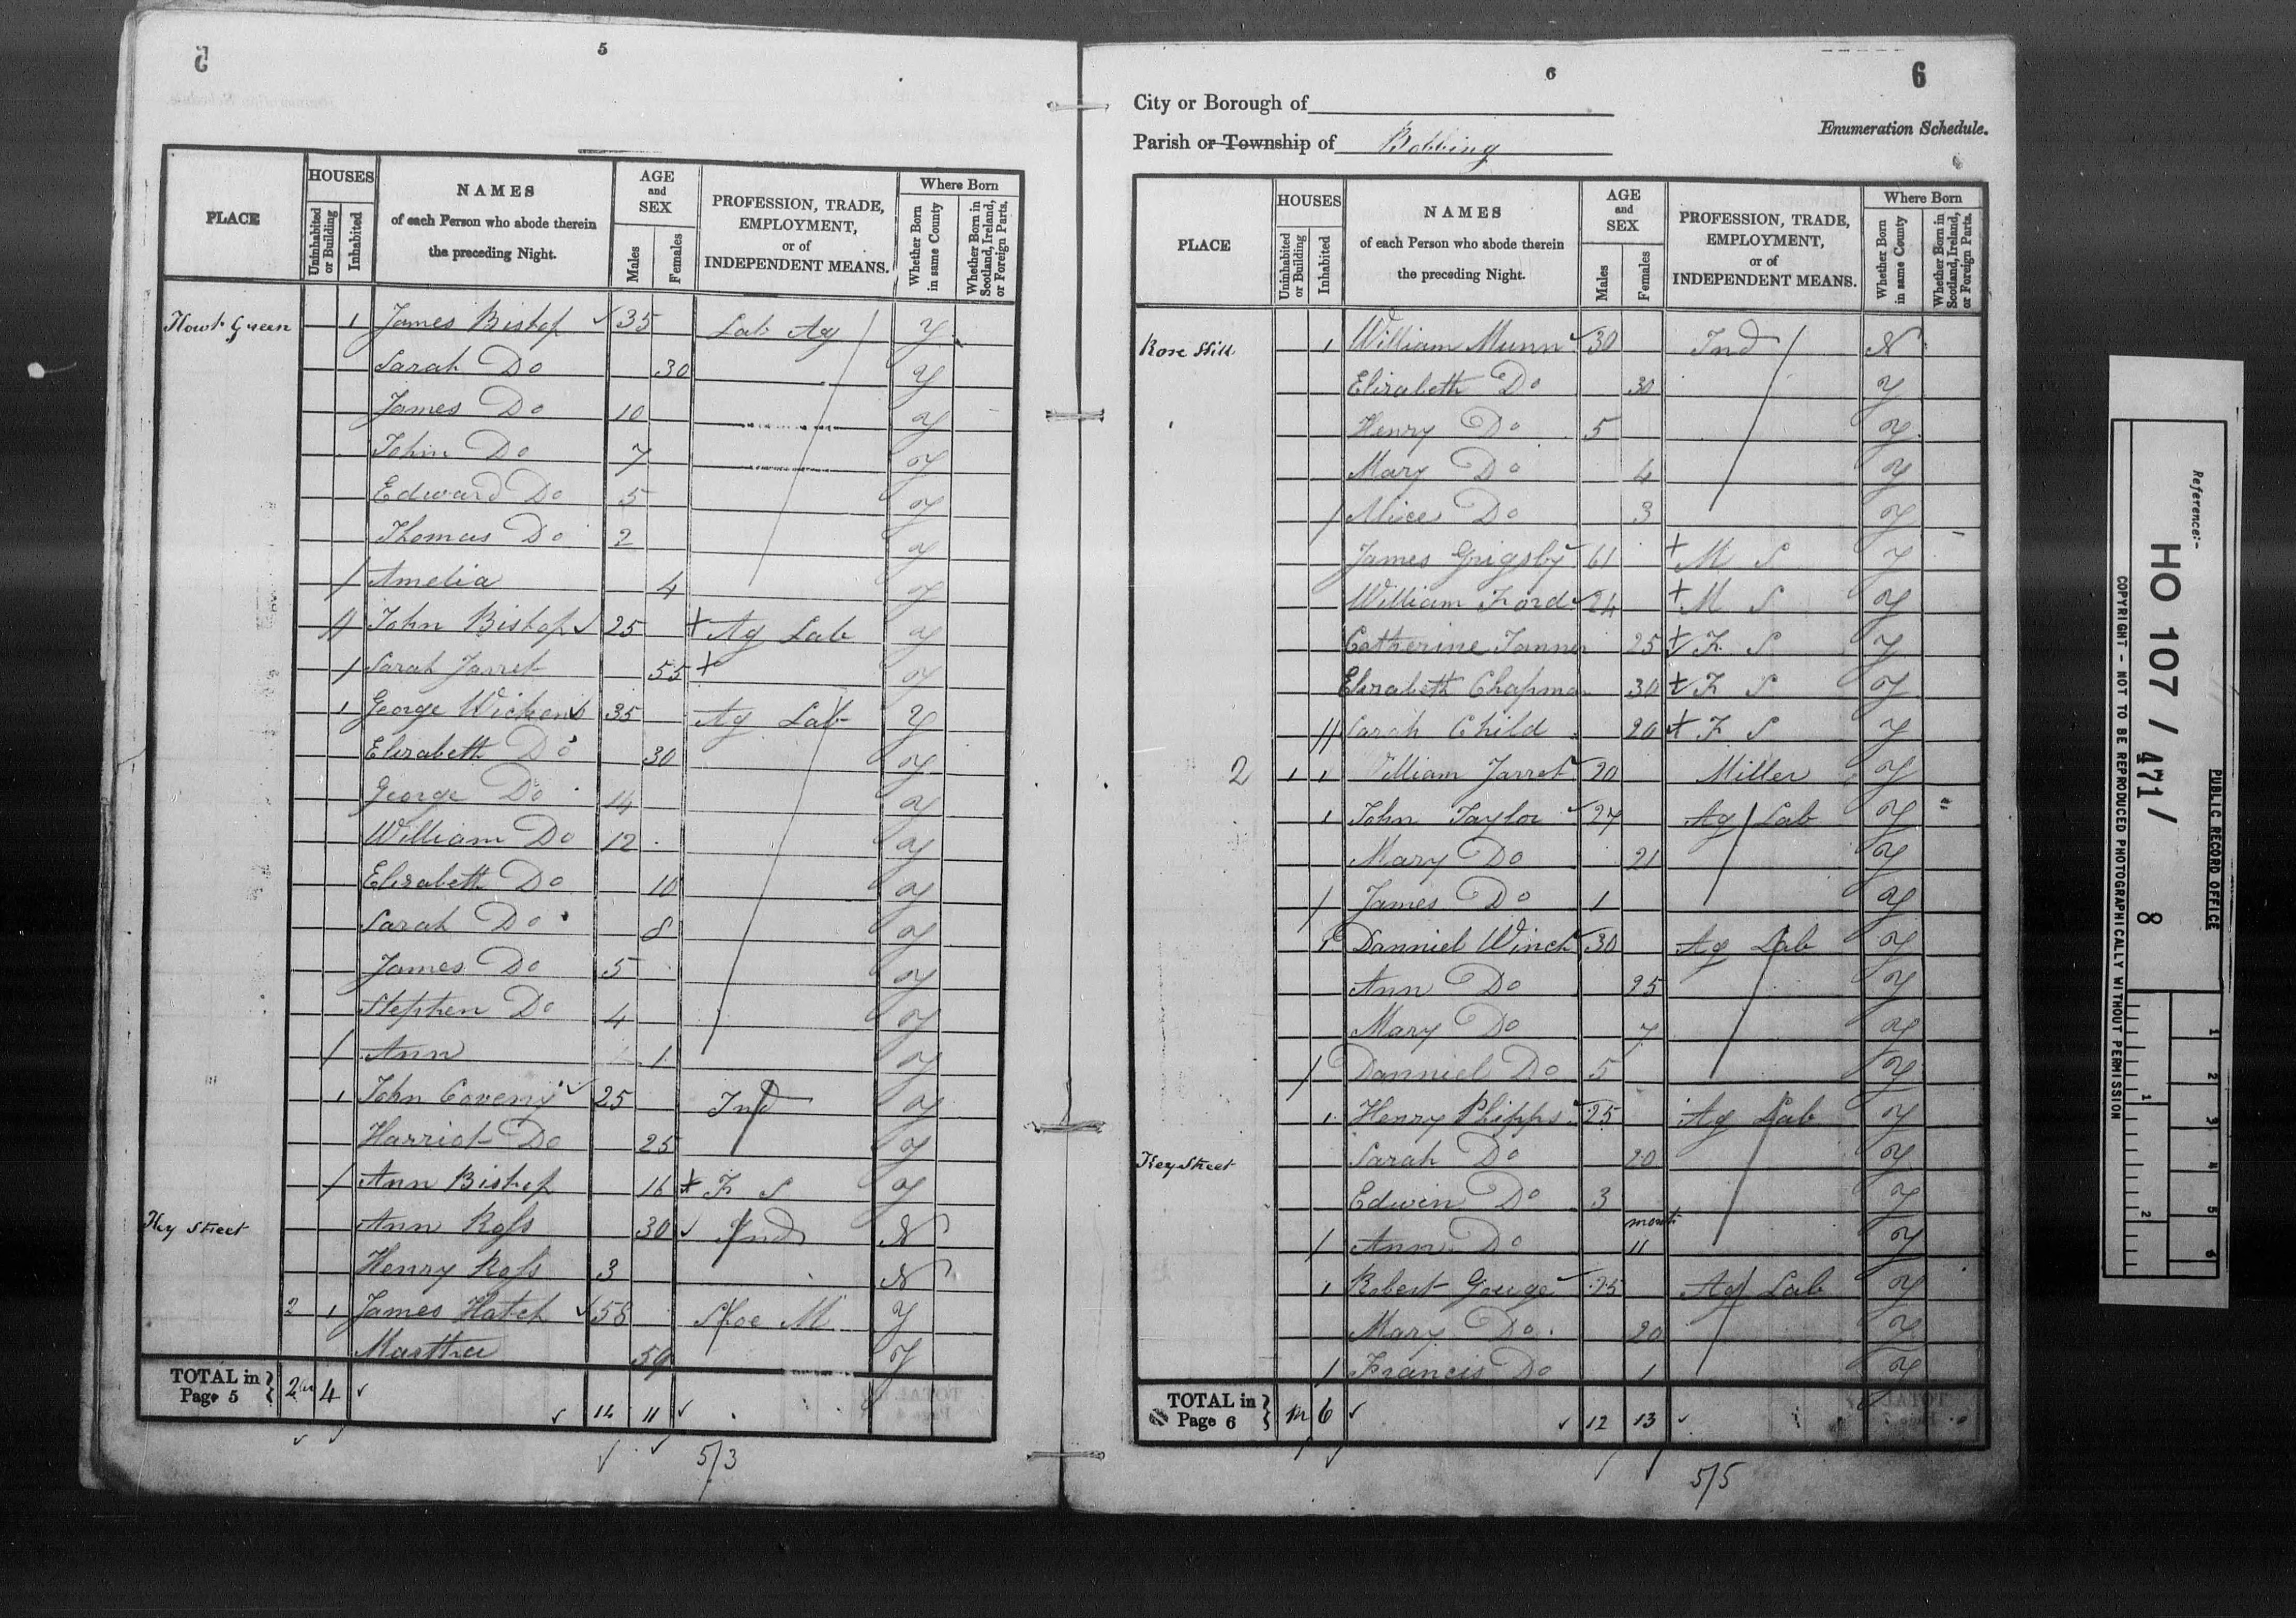 5
5
PLACE HOUSES NAMES of each Person who abode therein the preceding Night. AGE and SEX PROFESSION, TRADE, EMPLOYMENT, or of INDEPENDENT MEANS. Where Born
Uninhabited or Building Inhabited Males Females Whether Born in same County Whether Born in Scotland, Ireland, or Foreign Parts.
Howt Green 1 James Bishop 35 Lab Ag Y
Sarah Do 30 Y
James Do 10 Y
John Do 7 Y
Edward Do 5 Y
Thomas Do 2 Y
Amelia 4 Y
John Bishop 25 + Ag Lab Y
Sarah Jarret 55 + Y
1 George Wickens 35 Ag Lab Y
Elizabeth Do 30 Y
George Do 14 Y
William Do 12 Y
Elizabeth Do 10 Y
Sarah Do 8 Y
James Do 5 Y
Stephen Do 4 Y
Ann 1 Y
1 John Coveny 25 Ind Y
Harriot Do 25 Y
Ann Bishop 16 + F S Y
Key Street Ann Ross 30 Ind N
Henry Ross 3 N
2 1 James Hatch 58 Shoe M Y
Marthea 59 Y
TOTAL in Page 5 } 2 4 14 11
5/3
6
6
City or Borough of
Parish or Township of Bobbing
Enumeration Schedule.
PLACE HOUSES NAMES of each Person who abode therein the preceding Night. AGE and SEX PROFESSION, TRADE, EMPLOYMENT, or of INDEPENDENT MEANS. Where Born
Uninhabited or Building Inhabited Males Females Whether Born in same County Whether Born in Scotland, Ireland, or Foreign Parts.
Rose Hill 1 William Munn 30 Ind N
Elizabeth Do 30 Y
Henry Do 5 Y
Mary Do 4 Y
Alice Do 3 Y
James Grigsby 61 + M S Y
William Ford 24 + M S Y
Catherine Tanner 25 + F S Y
Elizabeth Chapman 30 + F S Y
Sarah Child 20 + F S Y
2 1 1 William Jarret 20 Miller Y
1 John Taylor 27 Ag Lab Y
Mary Do 21 Y
James Do 1 Y
1 Danniel Winch 30 Ag Lab Y
Ann Do 25 Y
Mary Do 7 Y
Danniel Do 5 Y
1 Henry Phipps 25 Ag Lab Y
Key Street Sarah Do 20 Y
Edwin Do 3 Y
Ann Do 11 month Y
1 Robert Gouge 25 Ag Lab Y
Mary Do 20 Y
Francis Do 1 Y
TOTAL in Page 6 } 6 12 13
5/5
Reference:-
HO 107 / 471 / 8
PUBLIC RECORD OFFICE
COPYRIGHT - NOT TO BE REPRODUCED PHOTOGRAPHICALLY WITHOUT PERMISSION
1 2
1 2 3 4 5 6